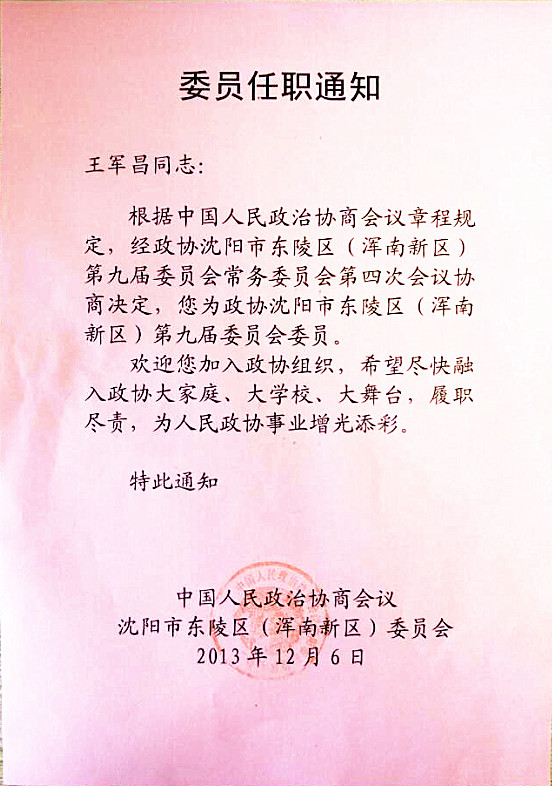 委员任职通知
王军昌同志：
根据中国人民政治协商会议章程规
定，经政协沈阳市东陵区（浑南新区）
第九届委员会常务委员会第四次会议协
商决定，您为政协沈阳市东陵区（浑南
新区）第九届委员会委员。
欢迎您加入政协组织，希望尽快融
入政协大家庭、大学校、大舞台，履职
尽责，为人民政协事业增光添彩。
特此通知
中国人民政治协商会议
沈阳市东陵区（浑南新区）委员会
2013年12月6日